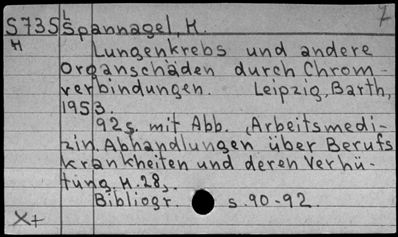 7
L
S735 Spannagel, H.
H Lungenkrebs und andere
Organschäden durch Chrom-
verbindungen. Leipzig, Barth,
1953.
92s. mit Abb. (Arbeitsmedi-
zin. Abhandlungen über Berufs
krankheiten und deren Verhü-
tung. H.28).
Bibliogr. s.90-92.
X+